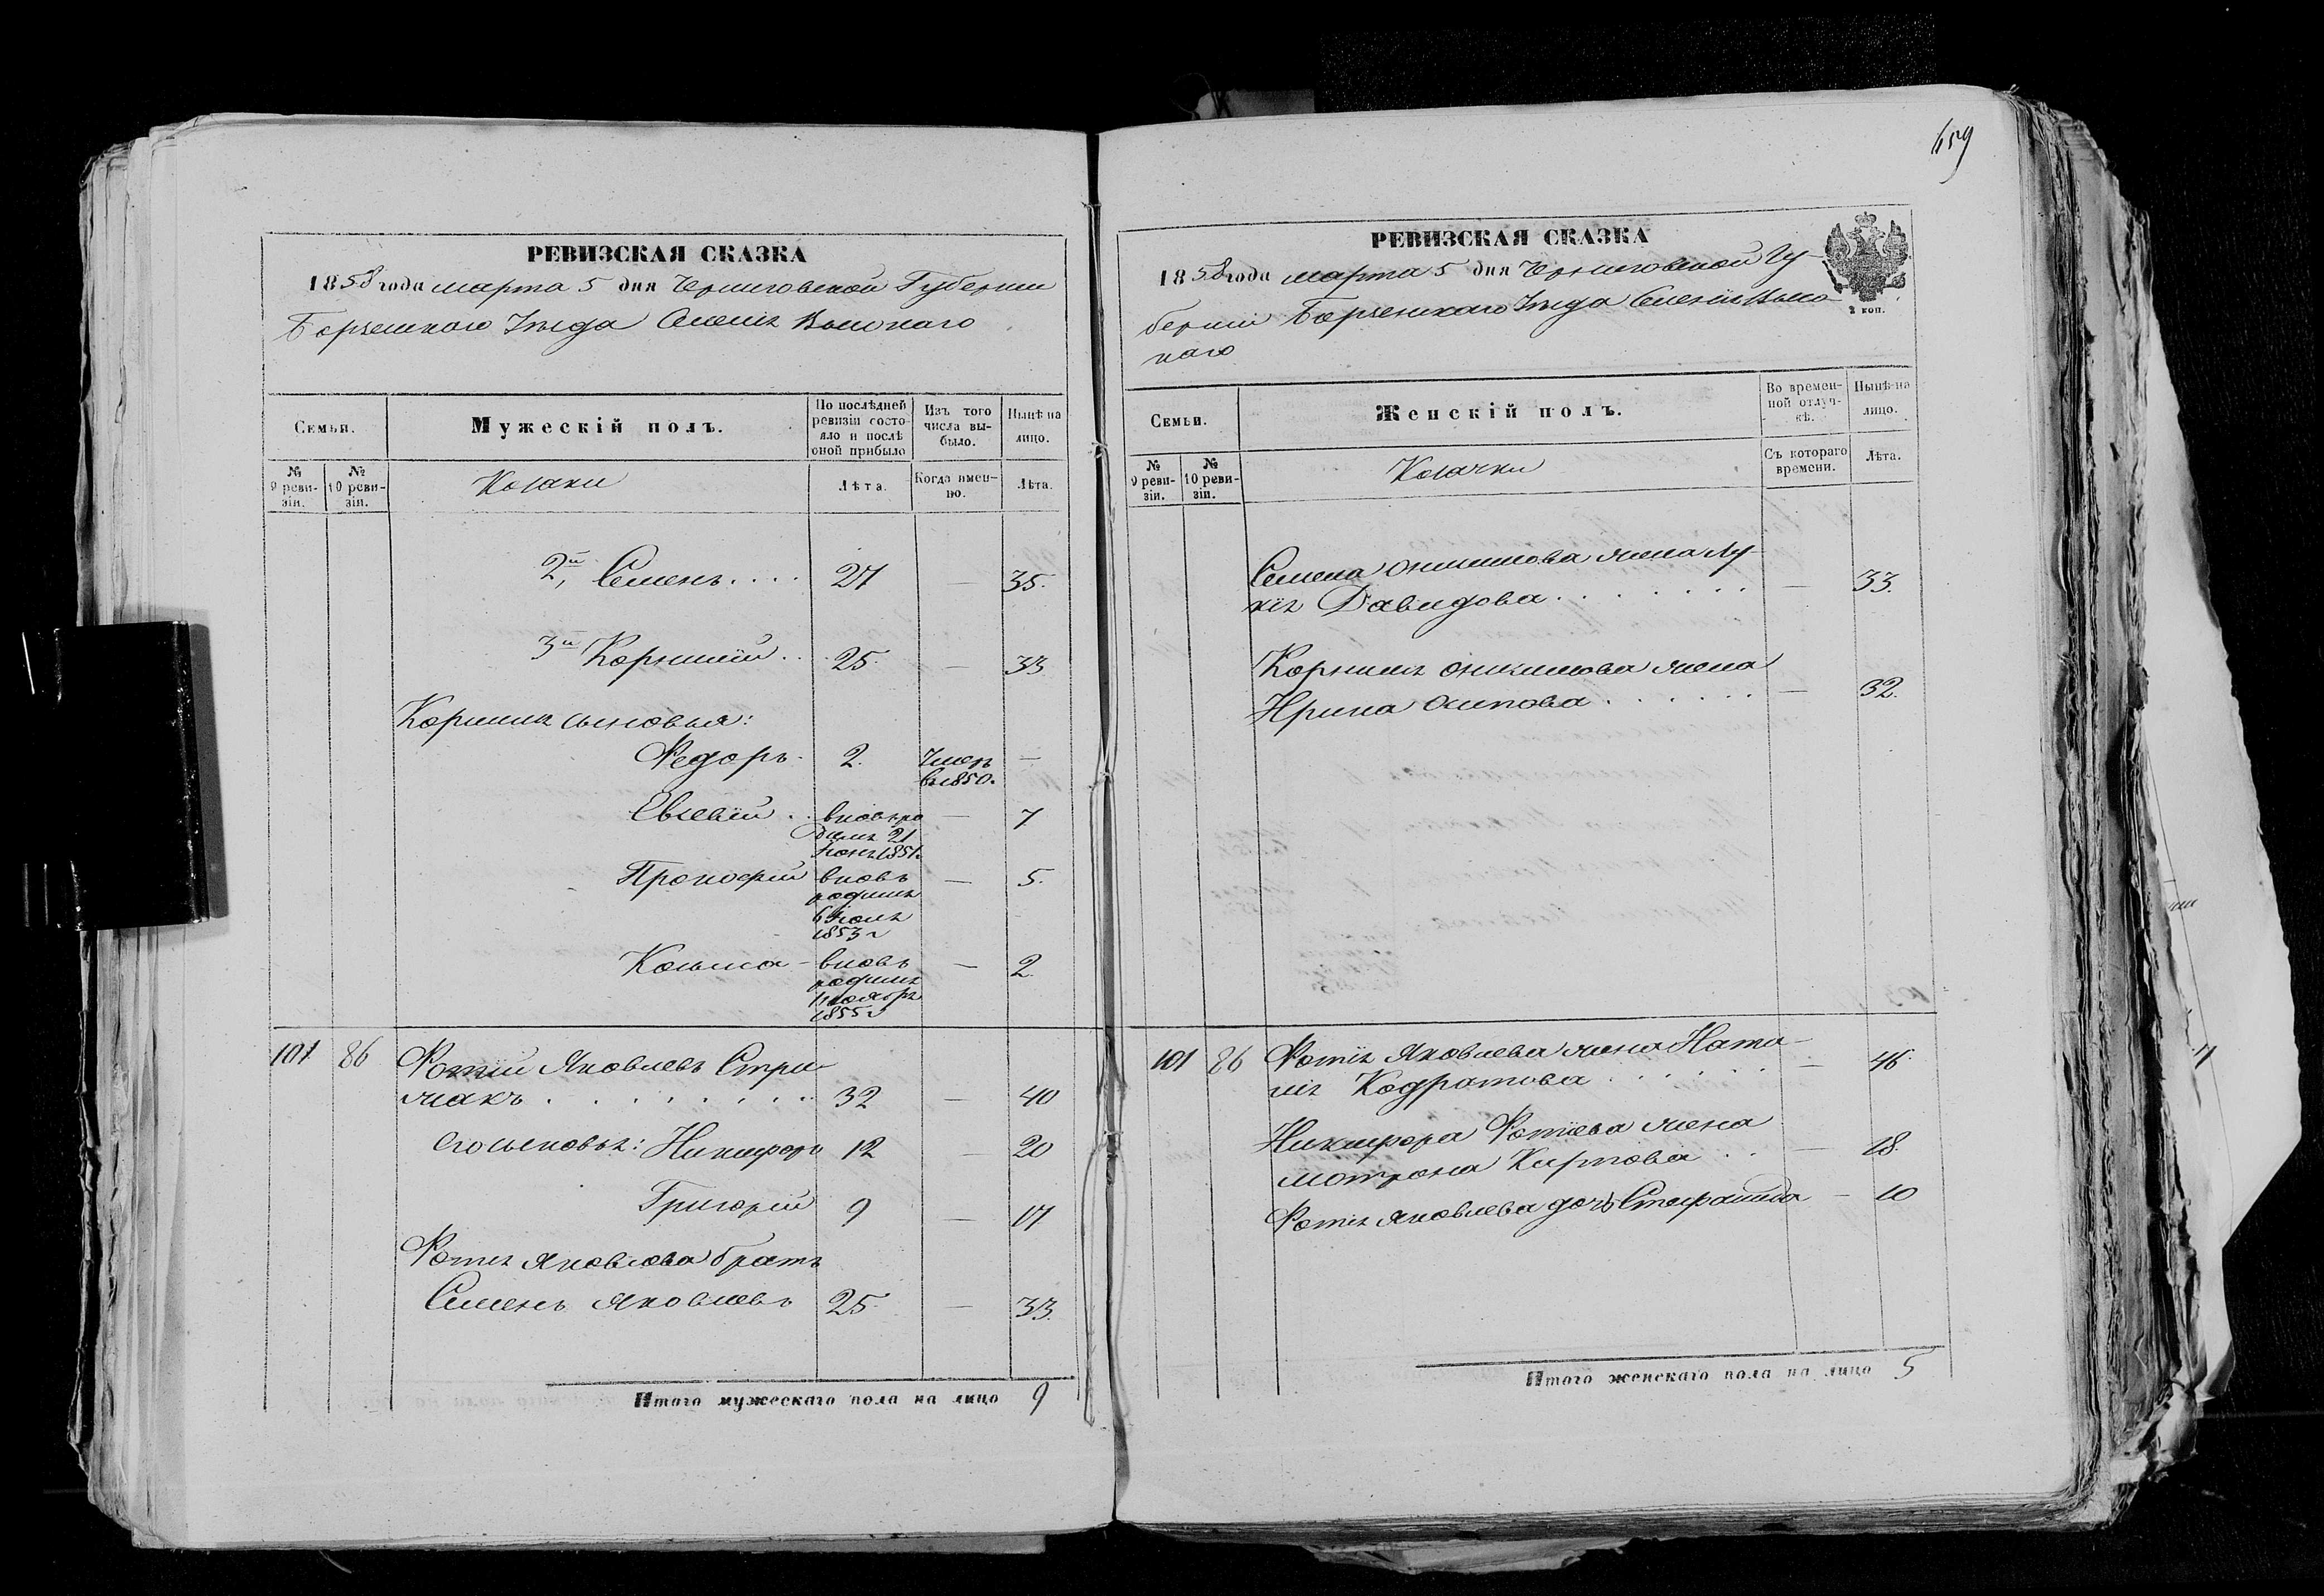 659
РЕВИЗСКАЯ СКАЗКА
1858 года марта 5 дня Черниговской Губернии
Борзенского Уезда Селения Высокаго
Семьи.
Мужескій полъ.
По послѣдней ревизіи состо-
яло и послѣ
оной прибыло
Изъ того
числа вы-
было.
Нынѣ на
лицо.
№
9 реви-
зіи.
№
10 реви-
зіи.
Козаки
Лѣта.
Когда имен-
но.
Лѣта.
2й Семенъ.... 27 — 35.
3й Корнилій.. 25. — 33
Корнилія сыновья:
Федоръ. 2. Умеръ —
въ 1850.
Евсевій.. вновь ро — 7
дился 21
1851.
Прокофій вновь — 5.
родился
6 Іюля
1853 г
Козьма - вновь — 2.
родился
1 ноября
1855 г
101 86 Фотій Яковлевъ Стри-
жакъ........ 32 — 40
его сыновья: Никифоръ 12 — 20
Григорій 9 — 17
Фотія Яковлева братъ
Семенъ Яковлевъ 25. — 33.
Итого мужескаго пола на лицо 9
РЕВИЗСКАЯ СКАЗКА
1858 года марта 5 дня Черниговской Гу-
берніи Борзенскаго Уезда Селенія Высо-
каго
2 коп.
Семьи.
Женскій полъ.
Во времен-
ной отлуч-
кѣ.
Нынѣ на
лицо.
№
9 реви-
зіи.
№
10 реви-
зіи.
Козачки
Съ котораго
времени.
Лѣта.
Семена Онисимова жена Лу-
кія Давидова....... — 33.
Корнилія Онисимова жена
Ирина Осипова...... — 32.
101 86 Фотія Яковлева жена Ната-
лія Кодратова...... — 46.
Никифора Фотіева жена
Мотрона Кирпова.. — 18.
Фотія Яковлева дочь Стефанида — 10
Итого женскаго пола на лицо 5